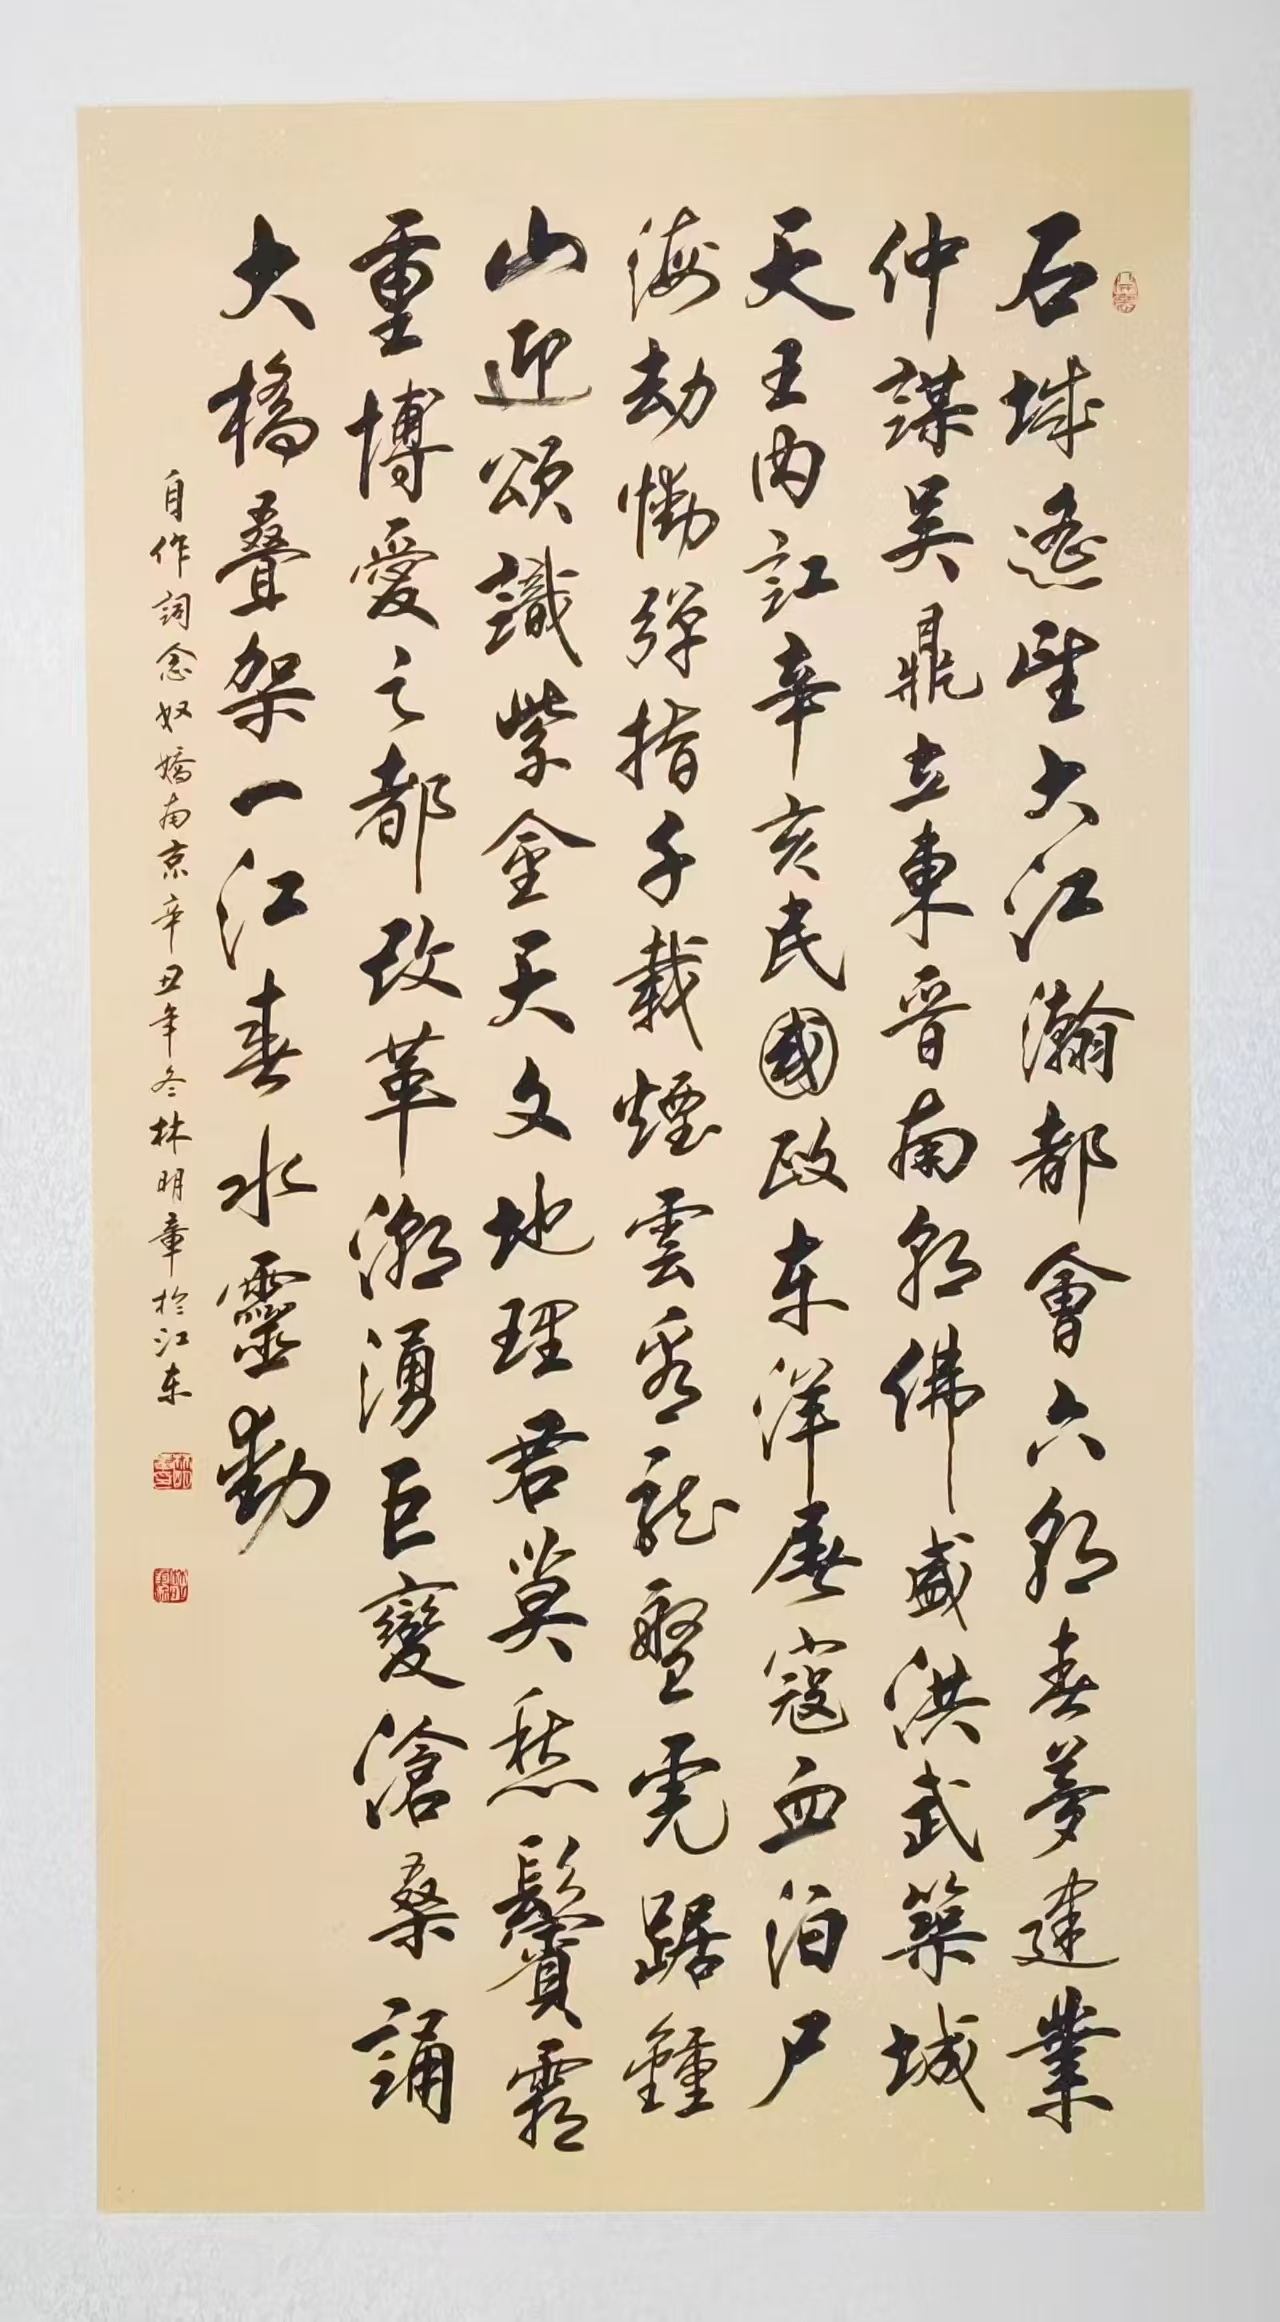 石城遙望大江瀚都會六朝春夢建業
仲謀吳鼎立東晉南朝佛盛洪武築城
天王内訌辛亥民國政东洋屠寇血泊尸
海劫慟彈指千載煙雲看龍盤虎踞鍾
山迎頌識紫金天文地理君莫愁鬢霜
重博愛之都改革潮湧巨變滄桑誦
大橋疊架一江春水靈動
自作詞念奴嬌南京辛丑年冬林明章於江东